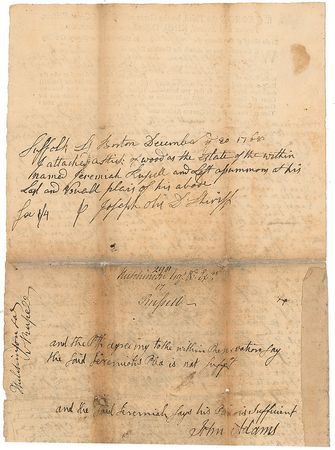 Suffolk Ss Boston December 20 1768
I attached a stick of wood as the Estate of the within
Named Jeremiah Russell and Left a summons at his
Last and Usuall place of his abode
Joseph Otis D Sheriff
Hutchinson
v
Russell
and the Plf agreeing to the within Reservation say
the said Jeremiah's Plea is not suff
and the said Jeremiah says his Plea is sufficient
John Adams
Hutchinson
v Russell